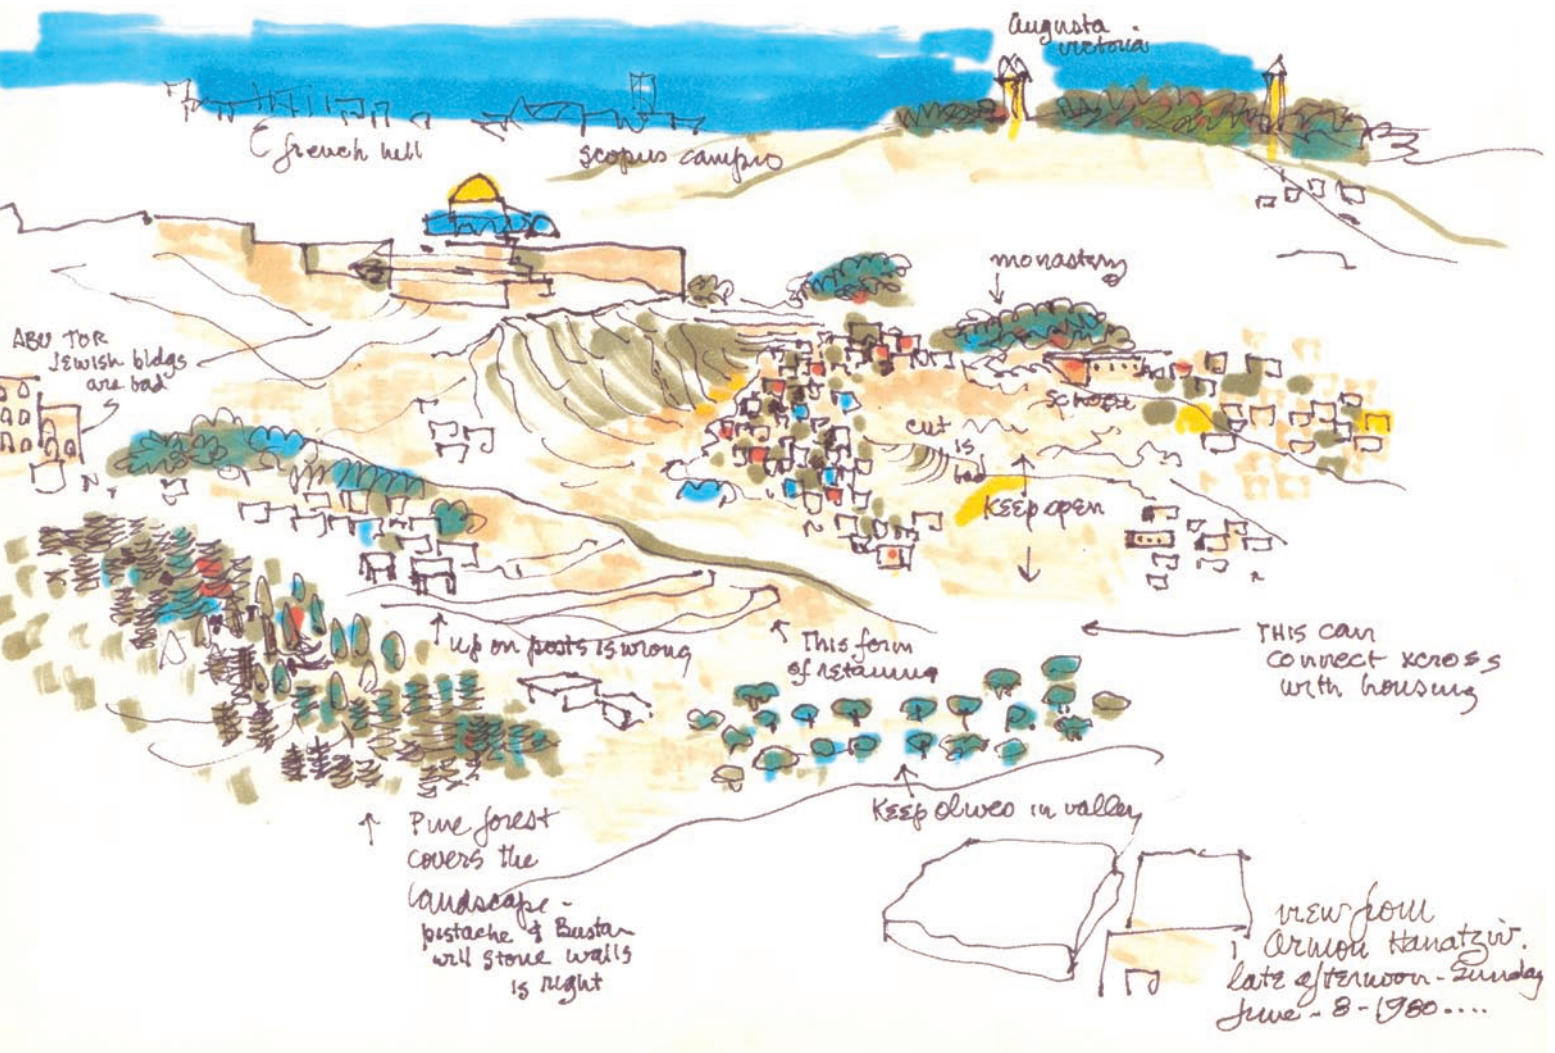 Augusta
victoria
french hill
scopus campus
monastery
ABU TOR
Jewish bldgs
are bad
school
cut
is
bad
KEEP open
up on posts is wrong
This form
of retaining
THIS can
connect xcross
with housing
KEEP olives in valley
Pine forest
covers the
landscape -
pistache & Bustan
with stone walls
is right
view from
Armon Hanatziv.
late afternoon - Sunday
June - 8 - 1980....